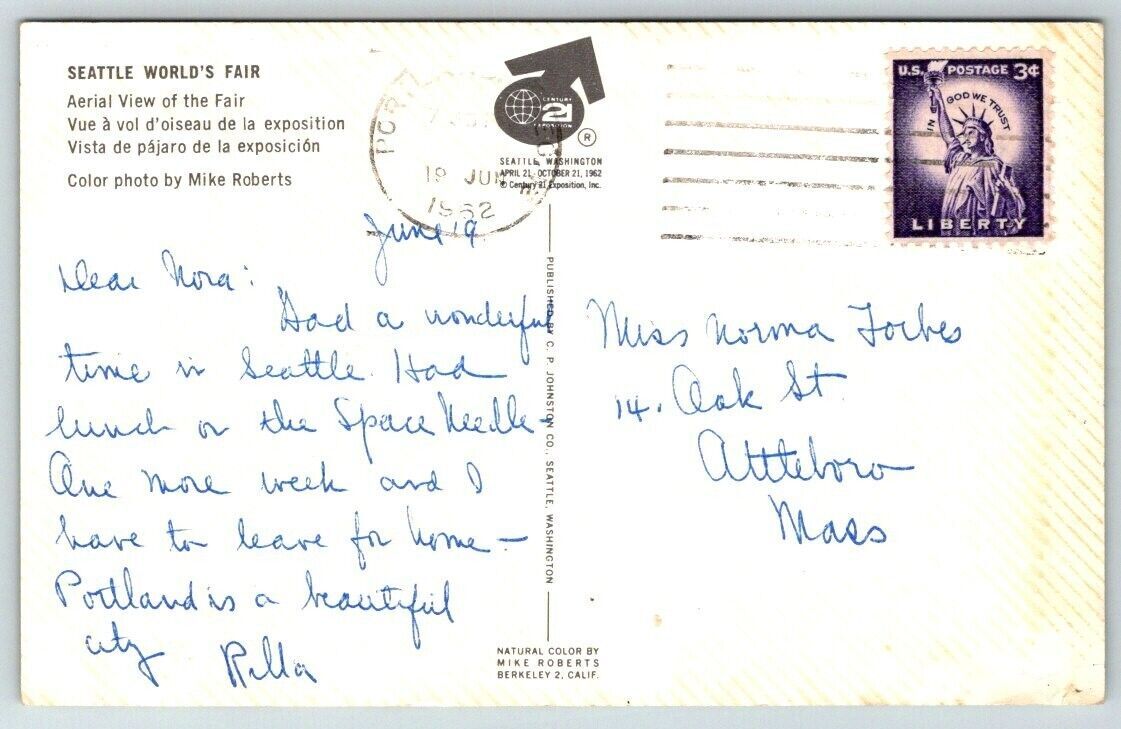 SEATTLE WORLD'S FAIR
Aerial View of the Fair
Vue à vol d'oiseau de la exposition
Vista de pájaro de la exposición
Color photo by Mike Roberts
CENTURY
21
EXPOSITION
®
SEATTLE, WASHINGTON
APRIL 21 - OCTOBER 21, 1962
© Century 21 Exposition, Inc.
19 JUN
1962
U.S. POSTAGE 3¢
IN GOD WE TRUST
LIBERTY
June 19
Dear Nora:
Had a wonderful
time in Seattle. Had
lunch on the Space Needle-
One more week and I
have to leave for home-
Portland is a beautiful
city
Rilla
PUBLISHED BY C. P. JOHNSTON CO., SEATTLE, WASHINGTON
Miss Norma Forbes
14. Oak St.
Attteboro
Mass
NATURAL COLOR BY
MIKE ROBERTS
BERKELEY 2, CALIF.